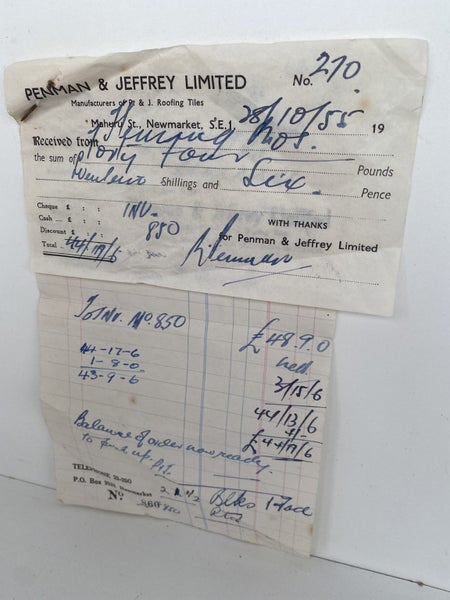 PENMAN & JEFFREY LIMITED
No. 270
Manufacturers of P. & J. Roofing Tiles
Maheru St., Newmarket, S.E.1 28/10/55 19
Received from Bros.
the sum of Forty Four Pounds
Shillings and Six Pence
Cheque £ : : INV.
Cash £ : : 850
WITH THANKS
Discount £ : : for Penman & Jeffrey Limited
Total 44/17/6 Penman
To Inv. No. 850
£48.9.0
44-17-6
1-8-0
43-9-6
3/15/6
44/13/6
£44/17/6
Balance of order now ready
to pick up
TELEPHONE
P.O. Box Newmarket
No 850 Blks 1 Face